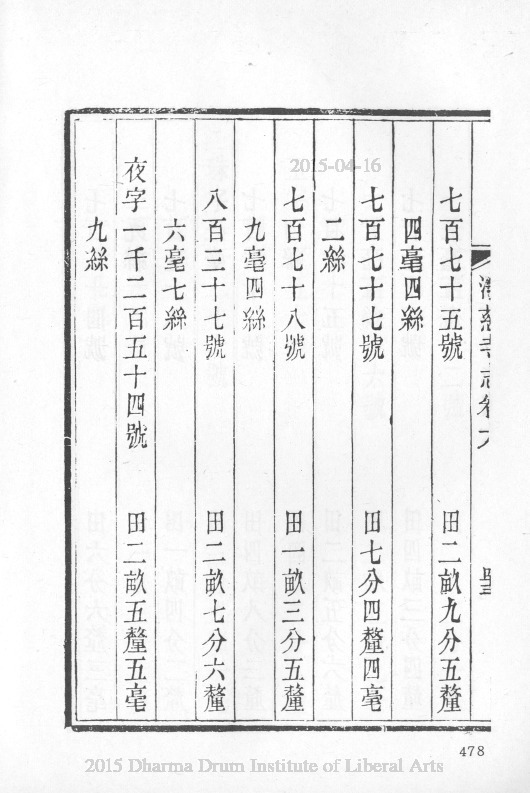 淨慈寺志卷六
七百七十五號 田二畝九分五釐
四毫四絲
七百七十七號 田七分四釐四毫
二絲
七百七十八號 田一畝三分五釐
九毫四絲
八百三十七號 田二畝七分六釐
六毫七絲
夜字 一千二百五十四號 田二畝五釐五毫
九絲
2015-04-16
478
2015 Dharma Drum Institute of Liberal Arts